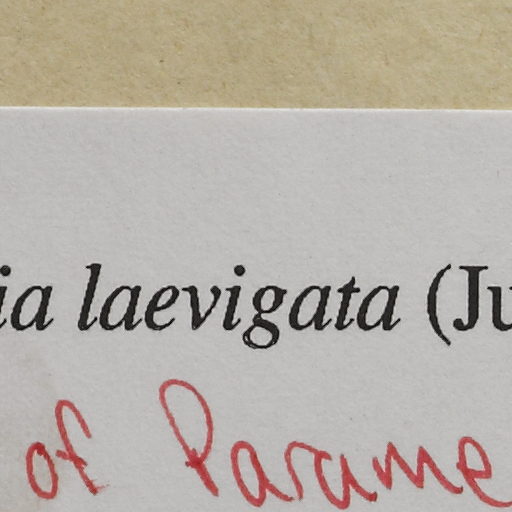 ia laevigata (Ju
of Parame